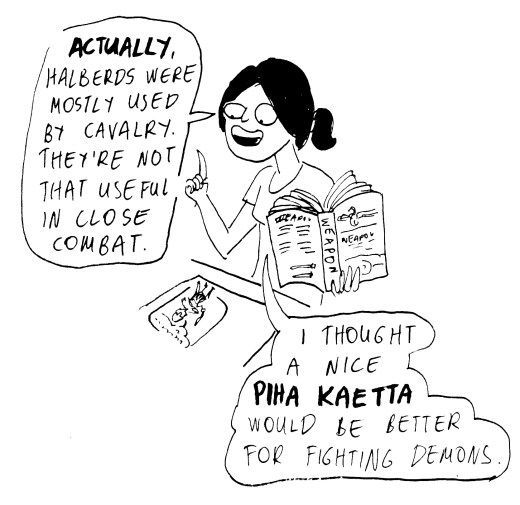 ACTUALLY,
HALBERDS WERE
MOSTLY USED
BY CAVALRY.
THEY'RE NOT
THAT USEFUL
IN CLOSE
COMBAT.
WEAPON
WEAPON
I THOUGHT
A NICE
PIHA KAETTA
WOULD BE BETTER
FOR FIGHTING DEMONS.